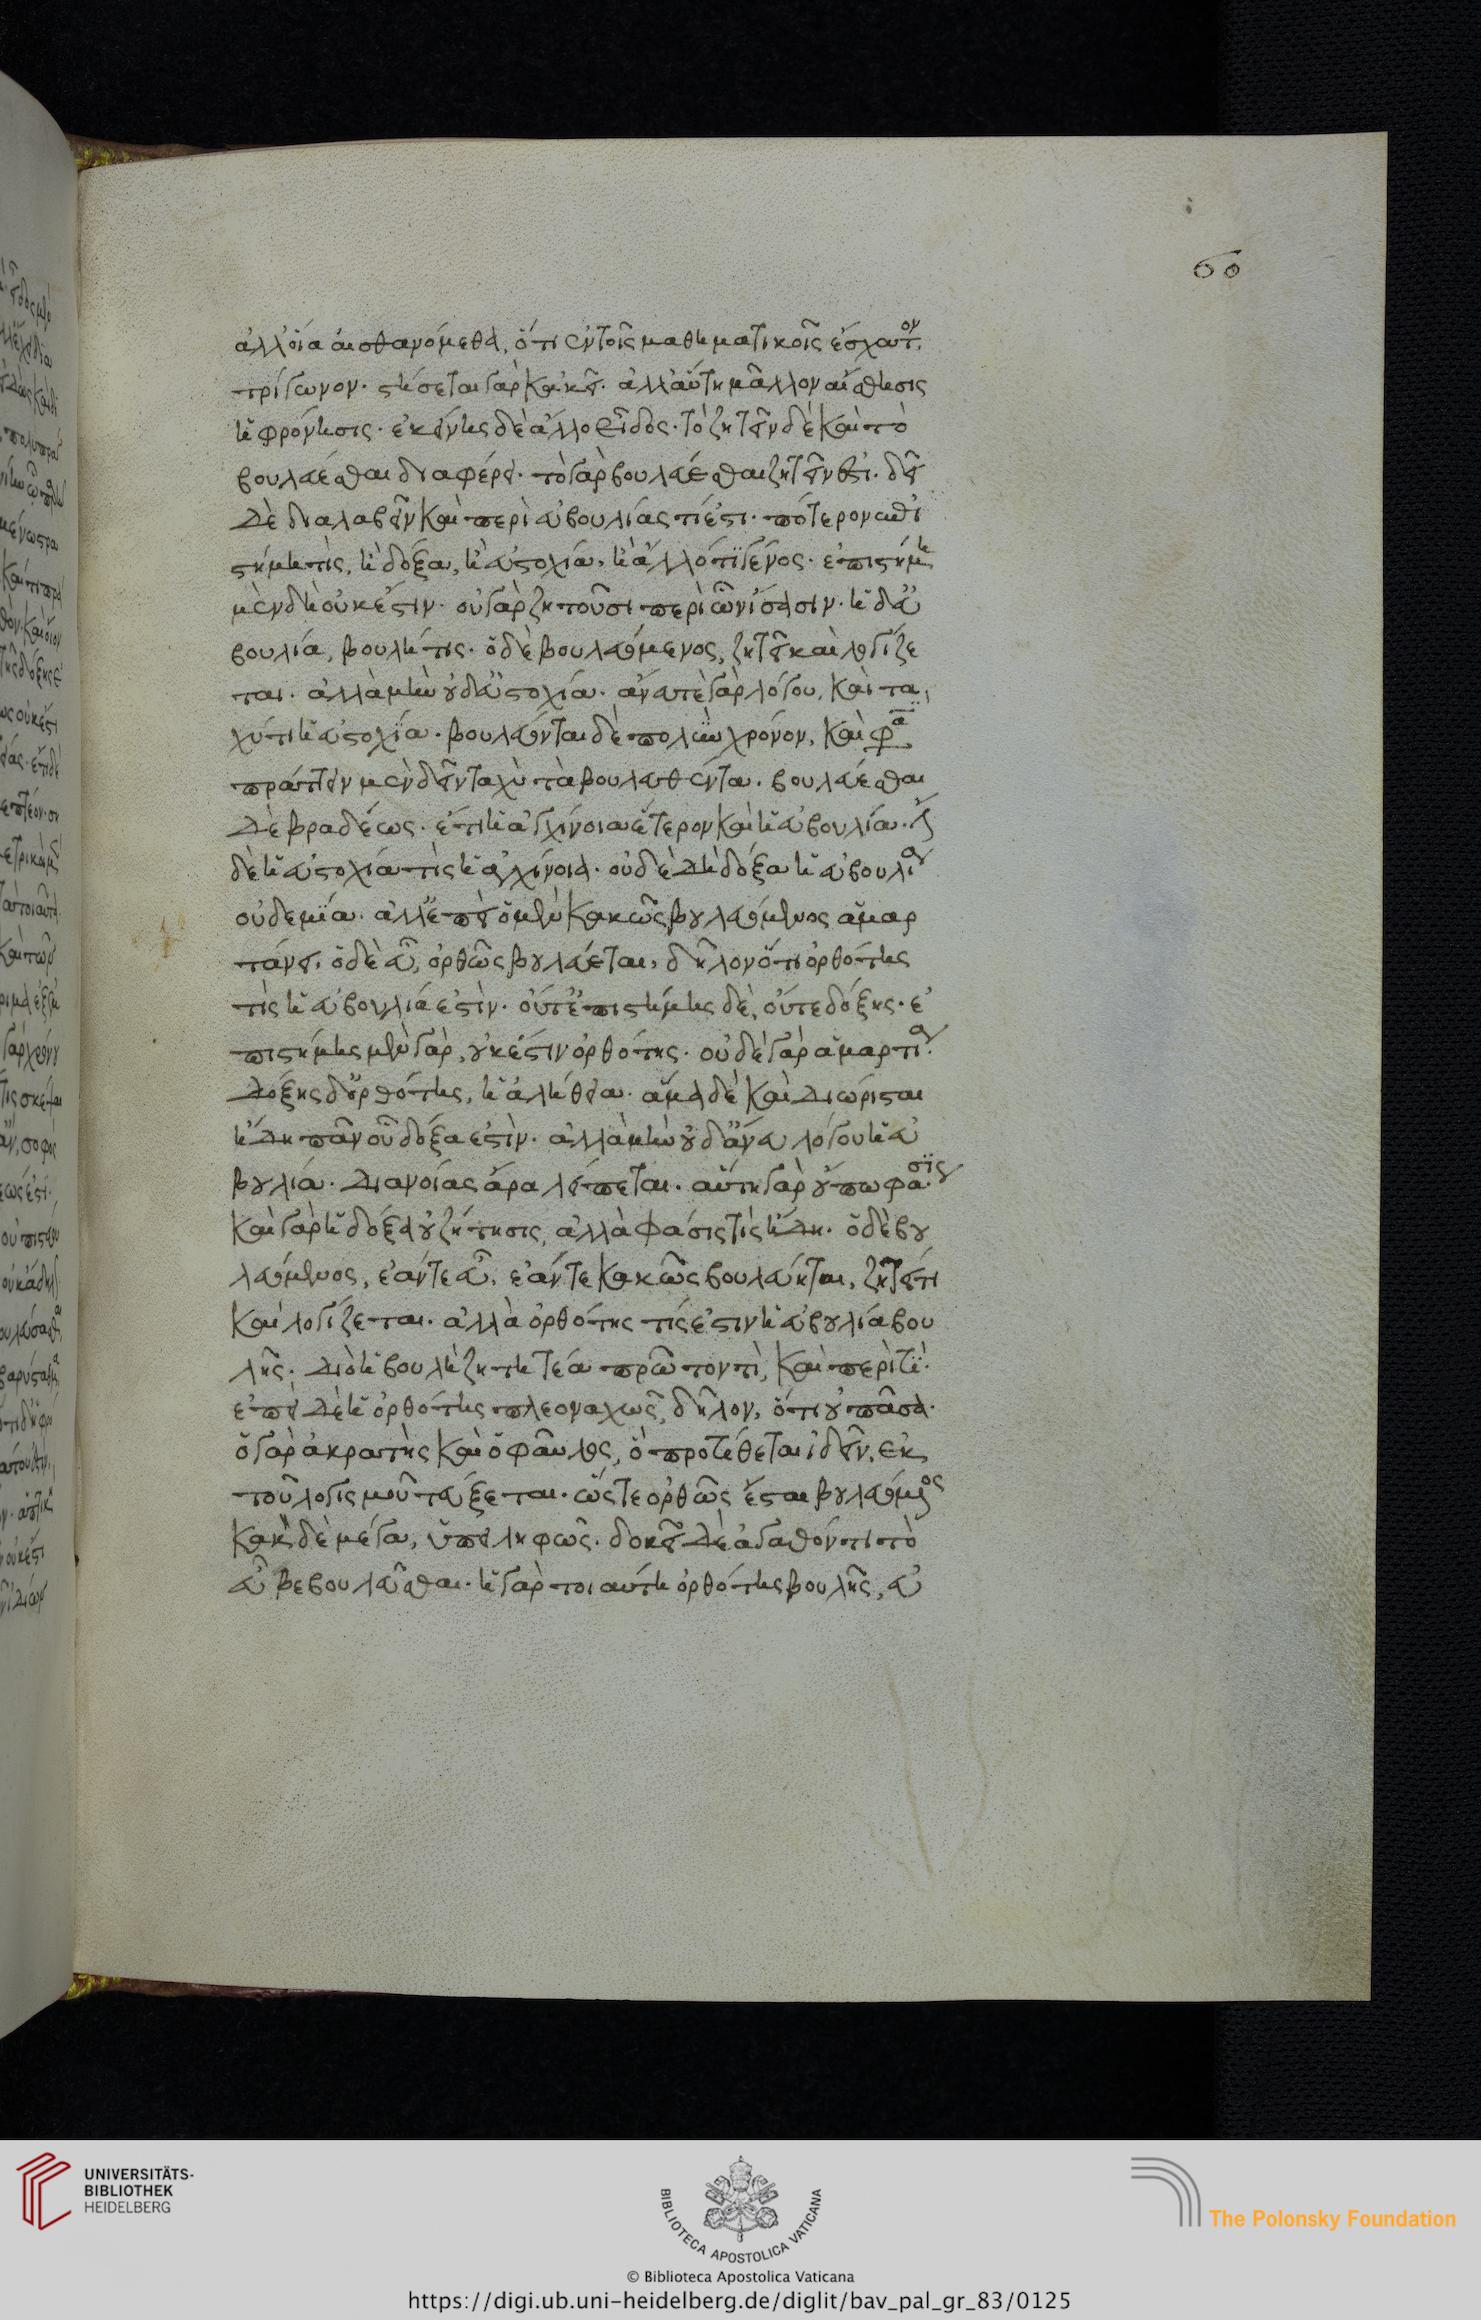 60
ἀλλ' οἵα αἰσθανόμεθα, ὅτι ἐν τοῖς μαθηματικοῖς ἔσχατον
τρίγωνον· στήσεται γὰρ κἀκεῖ· ἀλλ' αὕτη μᾶλλον αἴσθησις
ἢ φρόνησις· ἐκείνης δὲ ἄλλο εἶδος· τὸ ζητεῖν δὲ καὶ τὸ
βουλεύεσθαι διαφέρει· τὸ γὰρ βουλεύεσθαι ζητεῖν τι ἐστί· δεῖ
δὲ διαλαβεῖν καὶ περὶ εὐβουλίας τί ἐστι· πότερον ἐπι
στήμη τίς, ἢ δόξα, ἢ εὐστοχία, ἢ ἄλλό τι γένος· ἐπιστήμη
μὲν δὴ οὐκ ἔστιν· οὐ γὰρ ζητοῦσι περὶ ὧν ἴσασιν· ἡ δ' εὐ
βουλία, βουλή τις· ὁ δὲ βουλευόμενος, ζητεῖ καὶ λογίζε
ται· ἀλλὰ μὴν οὐδ' εὐστοχία· ἄνευ τὲ γὰρ λόγου, καὶ τα
χύ τι ἡ εὐστοχία· βουλεύονται δὲ πολὺν χρόνον, καὶ φασὶ
πράττειν μὲν δεῖν ταχὺ τὰ βουλευθέντα· βουλεύεσθαι
δὲ βραδέως· ἔτι ἡ ἀγχίνοια ἕτερον καὶ ἡ εὐβουλία· ἔστι
δὲ ἡ εὐστοχία τὶς ἡ ἀγχίνοια· οὐδὲ δὴ δόξα ἡ εὐβουλία
οὐδεμία· ἀλλ' ἐπεὶ ὁ μὲν κακῶς βουλευόμενος ἁμαρ
τάνει· ὁ δὲ εὖ, ὀρθῶς βουλεύεται, δῆλον ὅτι ὀρθότης
τὶς ἡ εὐβουλία ἐστὶν· οὔτ' ἐπιστήμης δὲ, οὔτε δόξης· ἐ
πιστήμης μὲν γὰρ, οὐκ ἔστιν ὀρθότης· οὐδὲ γὰρ ἁμαρτία·
δόξης δ' ὀρθότης, ἡ ἀλήθεια· ἅμα δὲ καὶ διώρισται
ἤδη πᾶν οὗ δόξα ἐστὶν· ἀλλὰ μὴν οὐδ' ἄνευ λόγου ἡ εὐ
βουλία· διανοίας ἄρα λείπεται· αὕτη γὰρ οὔπω φάσις·
καὶ γὰρ ἡ δόξα οὐ ζήτησις, ἀλλὰ φάσις τὶς ἤδη· ὁ δὲ βου
λευόμενος, ἐάν τε εὖ, ἐάν τε κακῶς βουλεύηται, ζητεῖ τι
καὶ λογίζεται· ἀλλὰ ὀρθότης τίς ἐστιν ἡ εὐβουλία βου
λῆς· διὸ ἡ βουλὴ ζητητέα πρῶτον τὶ, καὶ περὶ τί·
ἐπεὶ δὲ ἡ ὀρθότης πλεοναχῶς, δῆλον, ὅτι οὐ πᾶσα·
ὁ γὰρ ἀκρατὴς καὶ ὁ φαῦλος, ὃ προτίθεται ἰδεῖν, ἐκ
τοῦ λογισμοῦ τεύξεται· ὥστε ὀρθῶς ἔσται βουλευόμενος
κακὸν δὲ μέγα, ὑπειληφώς· δοκεῖ δὲ ἀγαθόν τι τὸ
εὖ βεβουλεῦσθαι· ἡ γὰρ τοιαύτη ὀρθότης βουλῆς, εὐ
UNIVERSITÄTS-
BIBLIOTHEK
HEIDELBERG
BIBLIOTECA APOSTOLICA VATICANA
© Biblioteca Apostolica Vaticana
The Polonsky Foundation
https://digi.ub.uni-heidelberg.de/diglit/bav_pal_gr_83/0125